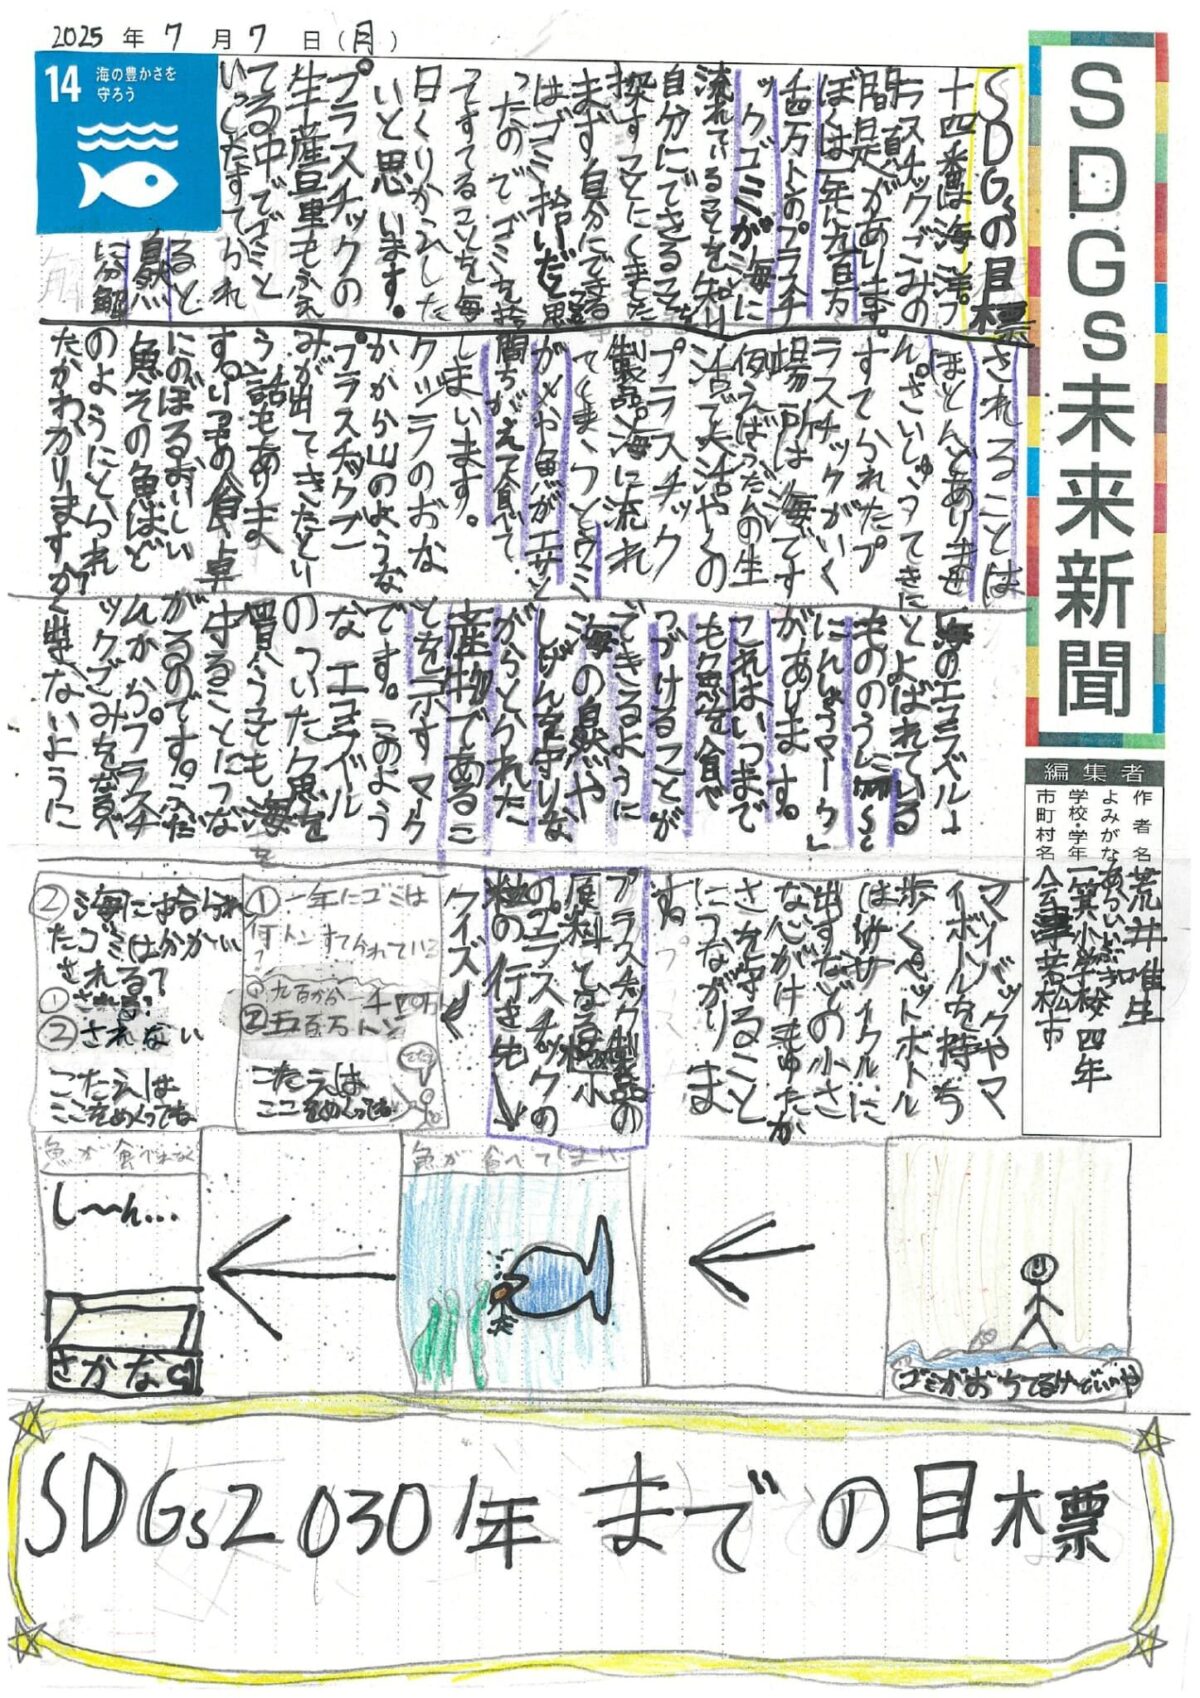 2025年7月7日(月)
SDGs未来新聞
編集者
作者名 荒井唯生
よみがな あらいいぶき
学校・学年 一箕小学校四年
市町村名 会津若松市
14 海の豊かさを
守ろう
SDGsの目標
十四番は海洋プ
ラスチックごみの
問題があります。
ぼくは一年に九百万
千四万トンのプラスチ
ックゴミが海に
流れていることを知り
自分にできることを
探すことにしました
まず自分にできる
はゴミ拾いだと思
ったのでゴミを拾
てすてることを毎
日くりかえした
いと思います。
プラスチックの
生産量もふえ
てる中でゴミと
いっしょにすてられ
ると
自然
に分解
されることは
ほとんどありませ
ん。さいしゅうてきに
すてられたプ
ラスチックがいく
場所は海です
例えばふだんの生
活で大活やくの
プラスチック
製品。海に流れ
てしまうとウミ
ガメや魚がエサと
間ちがえて食べて
しまいます。
クジラのおな
かから山のような
プラスチックゴ
ミが出てきたとい
う話もありま
す。いつもの食卓
にのぼるおいしい
魚その魚はど
のようにとられ
たかわかりますか?
海のエコラベル
とよばれている
もののうにMSC
にんしょうマーク」
があります。
これはいつまで
も魚を食べ
つづけることが
できるように
海の自然や
しげんを守りな
がらとられた
産物であるこ
とを示すマーク
です。このよう
なエコラベル
のついた魚を
買うことも海を
守ることにつな
がるのです。ふだ
んからプラスチ
ックごみを
出さないように
マイバックやマ
イボトルを持ち
歩くペットボトル
はリサイクルに
出すなどの小さ
な心がけもゆたか
さを守ること
につながりま
すね
プラスチック製品の
原料となる極小
のプラスチックの
粒の行き先↓
クイズ↓
①一年にゴミは
何トンすてられている
?
①九百から一千四百万
②五百万トン
こたえは
ここをめくってね
②海に捨てられ
たゴミは分かい
される?
①される?
②されない
こたえは
ここをめくってね
ゴミがおちてるけどいいや
魚が食べてしまい
魚が食べれなく
し〜ん…
さかな
SDGs2030年までの目標